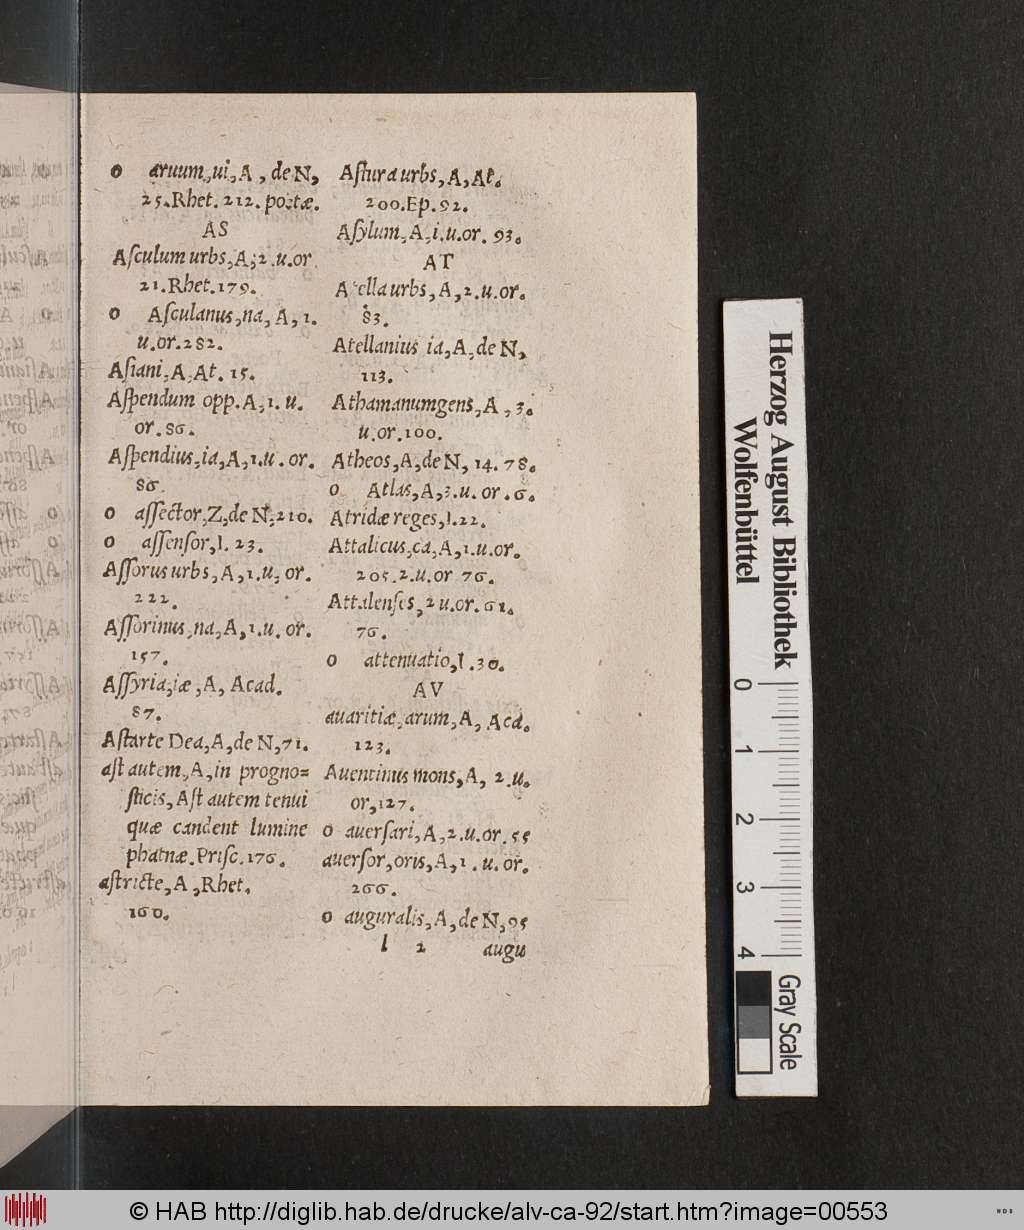 o aruum, ui, A, de N,
25. Rhet. 212. poetæ.
AS
Aſculum urbs, A, 2. u. or
21. Rhet. 179.
o Aſculanus, na, A, 1.
u. or. 282.
Aſiani, A, At. 15.
Aſpendum opp. A, 1. u.
or. 86.
Aſpendius, ia, A, 1. u. or.
86.
o aſſector, Z, de N, 210.
o aſſenſor, l. 23.
Aſſorus urbs, A, 1. u, or.
222.
Aſſorinus, na, A, 1. u. or.
157.
Aſſyria, iæ, A, Acad.
87.
Aſtarte Dea, A, de N, 71.
aſt autem, A, in progno=
ſticis, Aſt autem tenui
quæ candent lumine
phatnæ. Priſc. 176.
aſtricte, A, Rhet.
160.
Aſtura urbs, A, At.
200. Ep. 92.
Aſylum, A, i. u. or. 93.
AT
Atella urbs, A, 2. u. or.
83.
Atellanius ia, A, de N,
113.
Athamanum gens, A, 3.
u. or. 100.
Atheos, A, de N, 14. 78.
o Atlas, A, 3. u. or. 6.
Atridæ reges, l. 22.
Attalicus, ca, A, 1. u. or.
205. 2. u. or 76.
Attalenſes, 2 u. or. 61.
76.
o attenuatio, l. 30.
AV
auaritiæ, arum, A, Aca.
123.
Auentinus mons, A, 2. u.
or, 127.
o auerſari, A, 2. u. or. 55
auerſor, oris, A, 1. u. or.
266.
o auguralis, A, de N, 95
l 2 augu
Herzog August Bibliothek
Wolfenbüttel
0 1 2 3 4
Gray Scale
© HAB http://diglib.hab.de/drucke/alv-ca-92/start.htm?image=00553